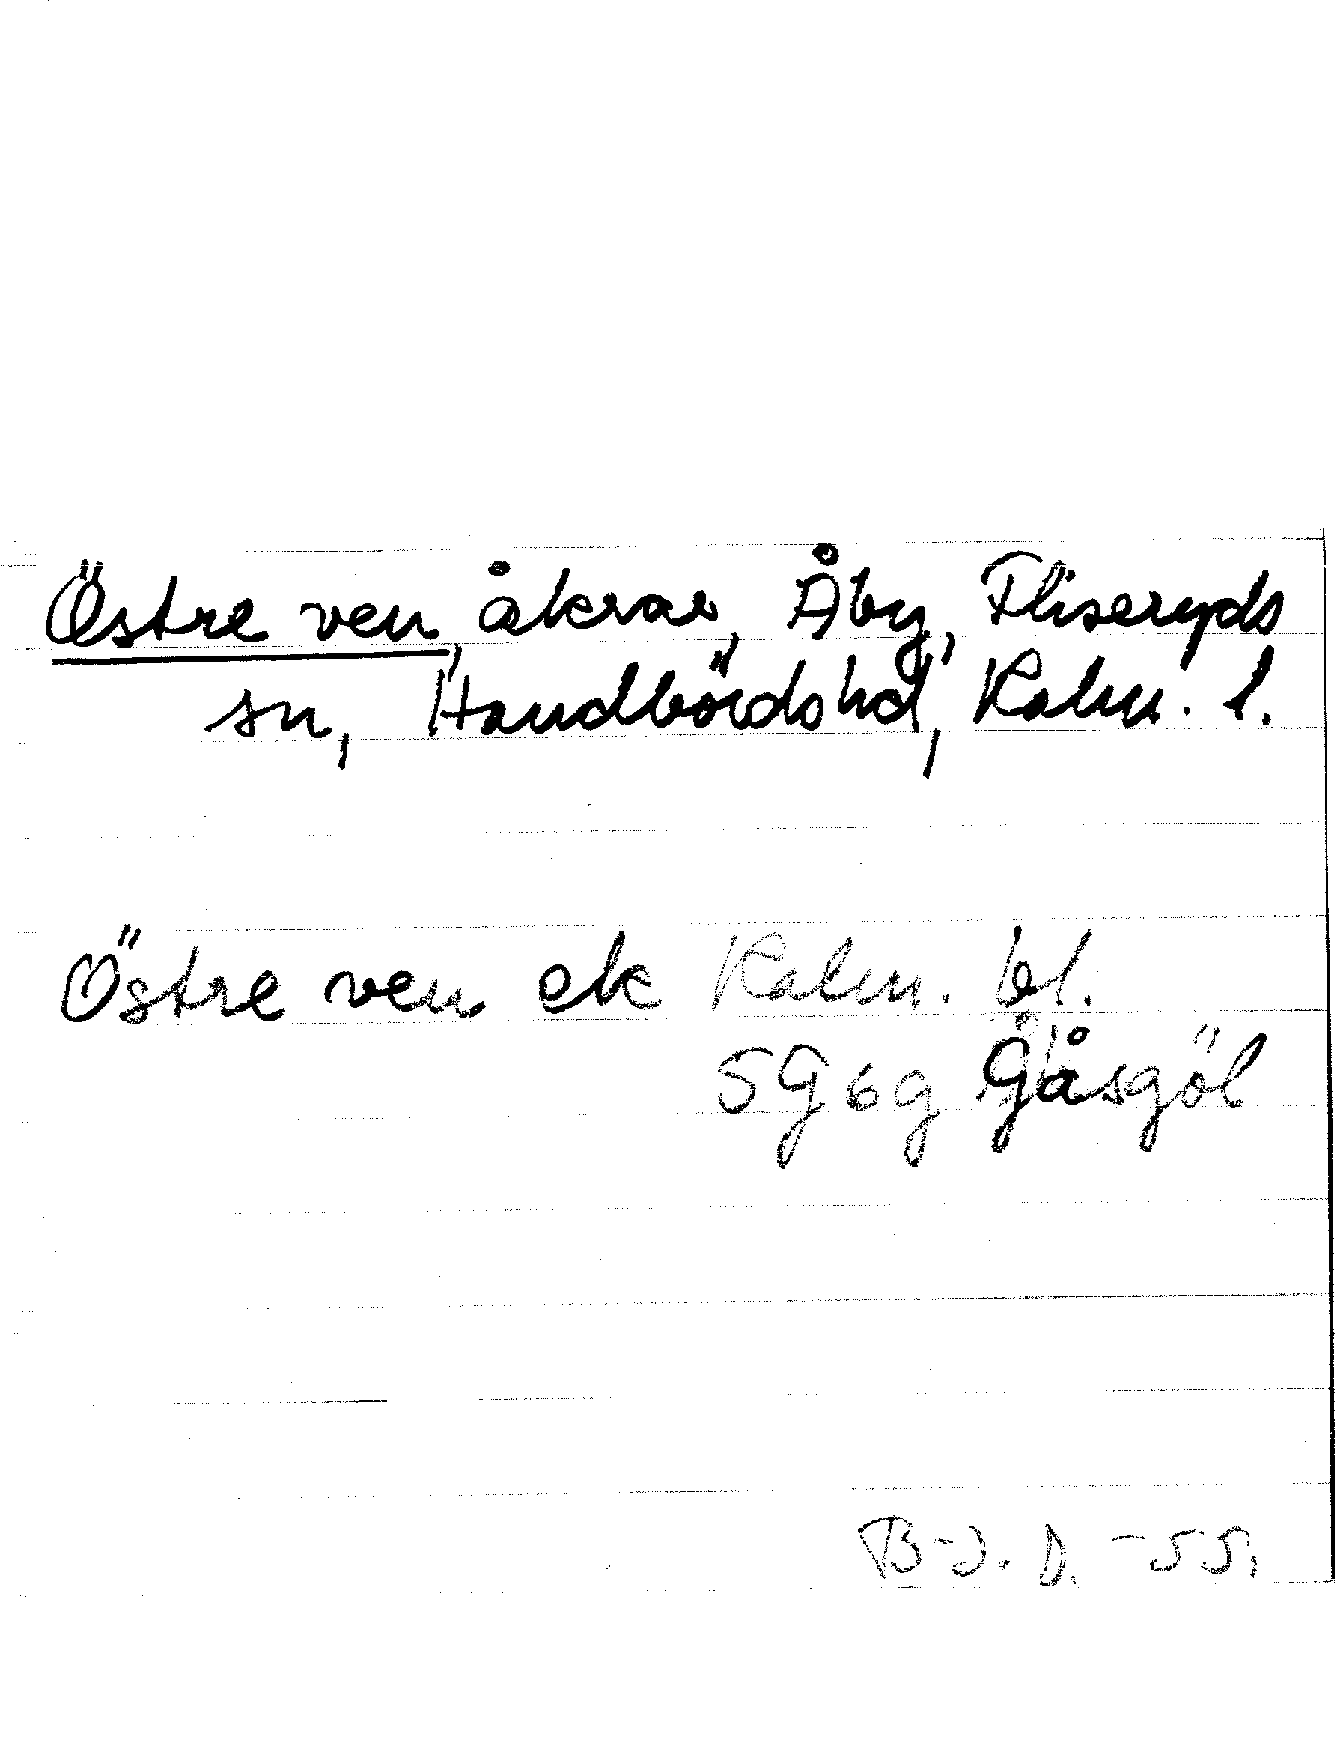 Östre ven, åkrar, Åby, Fliseryds
sn, Handbördshd, Kalm. l.
Östre ven ek Kalm. bl.
5G6g Gåsgöl
B-J. D. -55.